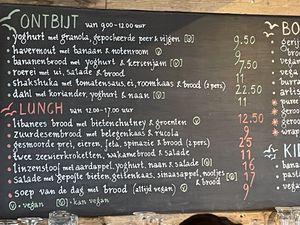 ONTBIJT van 9.00-12.00 uur
yoghurt met granola, gepocheerde peer & vijgen 9.50
havermout met banaan & notenroom 9
bananenbrood met yoghurt & kersenjam 7.50
roerei met ui, salade & brood 11
shakshuka met tomatensaus, ei, roomkaas & brood (2 pers) 22.50
dahl met koriander, yoghurt & naan 11
LUNCH van 12.00-17.00 uur
libanees brood met bietenchutney & groenten 12.50
zuurdesembrood met belegenkaas & rucola 9
gesmoorde prei, eieren, feta, spinazie & brood (2 pers) 25
twee zeewierkroketten, wakamebrood & salade 11
linzenstoof met aardappel, yoghurt, naan & salade 16
salade met gepofte bieten, geitenkaas, sinaasappel, nootjes & brood 17
soep van de dag met brood (altijd vegan) 9
= vegan = kan vegan
BO
geri
br
kaas
bitt
arr
vega
pure
gero
wrap
KI